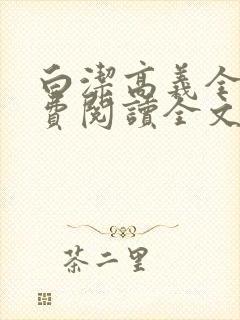 白潔高義全
費閱讀全文
茶二里